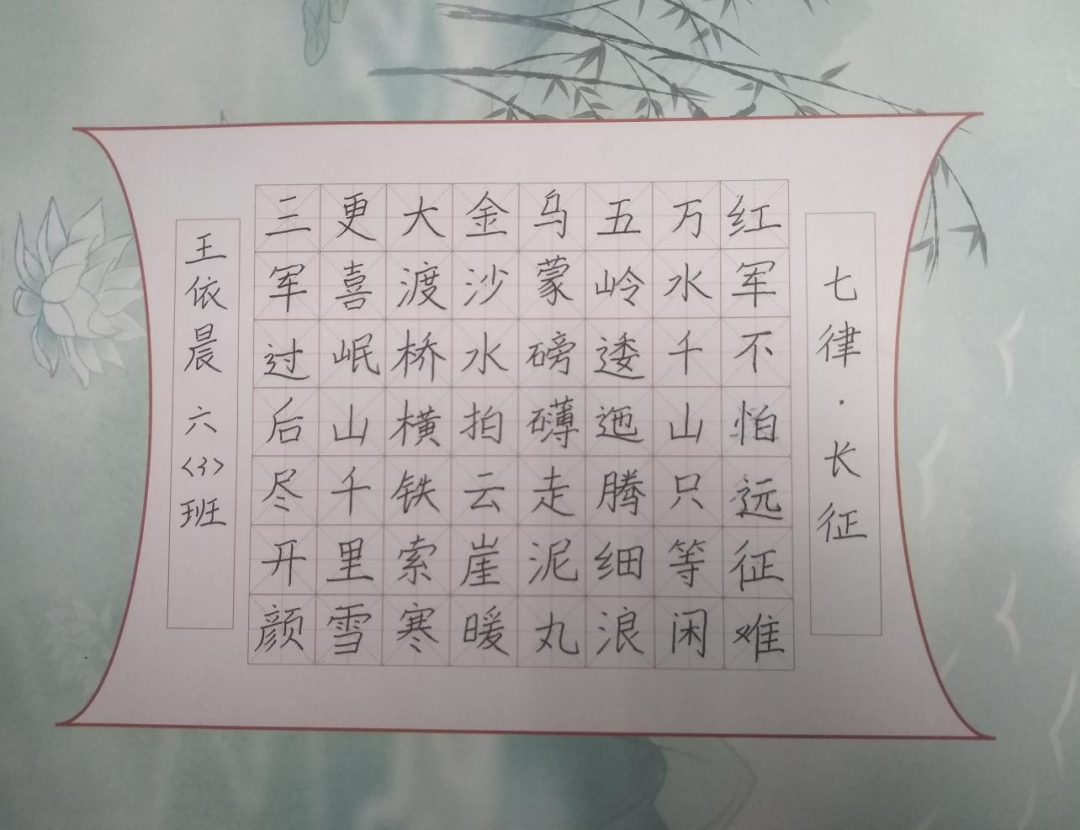 七律·长征
红军不怕远征难
万水千山只等闲
五岭逶迤腾细浪
乌蒙磅礴走泥丸
金沙水拍云崖暖
大渡桥横铁索寒
更喜岷山千里雪
三军过后尽开颜
王依晨 六〈3〉班